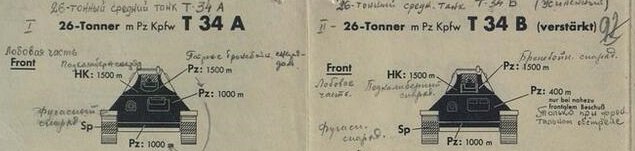 26-тонный средний танк Т-34 А
I
26-Tonner m Pz Kpfw T 34 A
Лобовая часть
Front
Подкалиберн. снаряд
HK: 1500 m
Pz: 1500 m
Pz: 1000 m
Фугасный снаряд.
Sp
Pz: 1000 m
26-тонный средн. танк Т-34 В (усиленный)
II
26-Tonner m Pz Kpfw T 34 B (verstärkt)
92
Лобовое часть.
Front
Подкалиберный снаряд.
HK: 1500 m
Бронебойн. снаряд.
Pz: 1500 m
Pz: 400 m
nur bei nahezu
frontalem Beschuß
Только при
обстреле
Фугасн. снаряд.
Sp
Pz: 1000 m